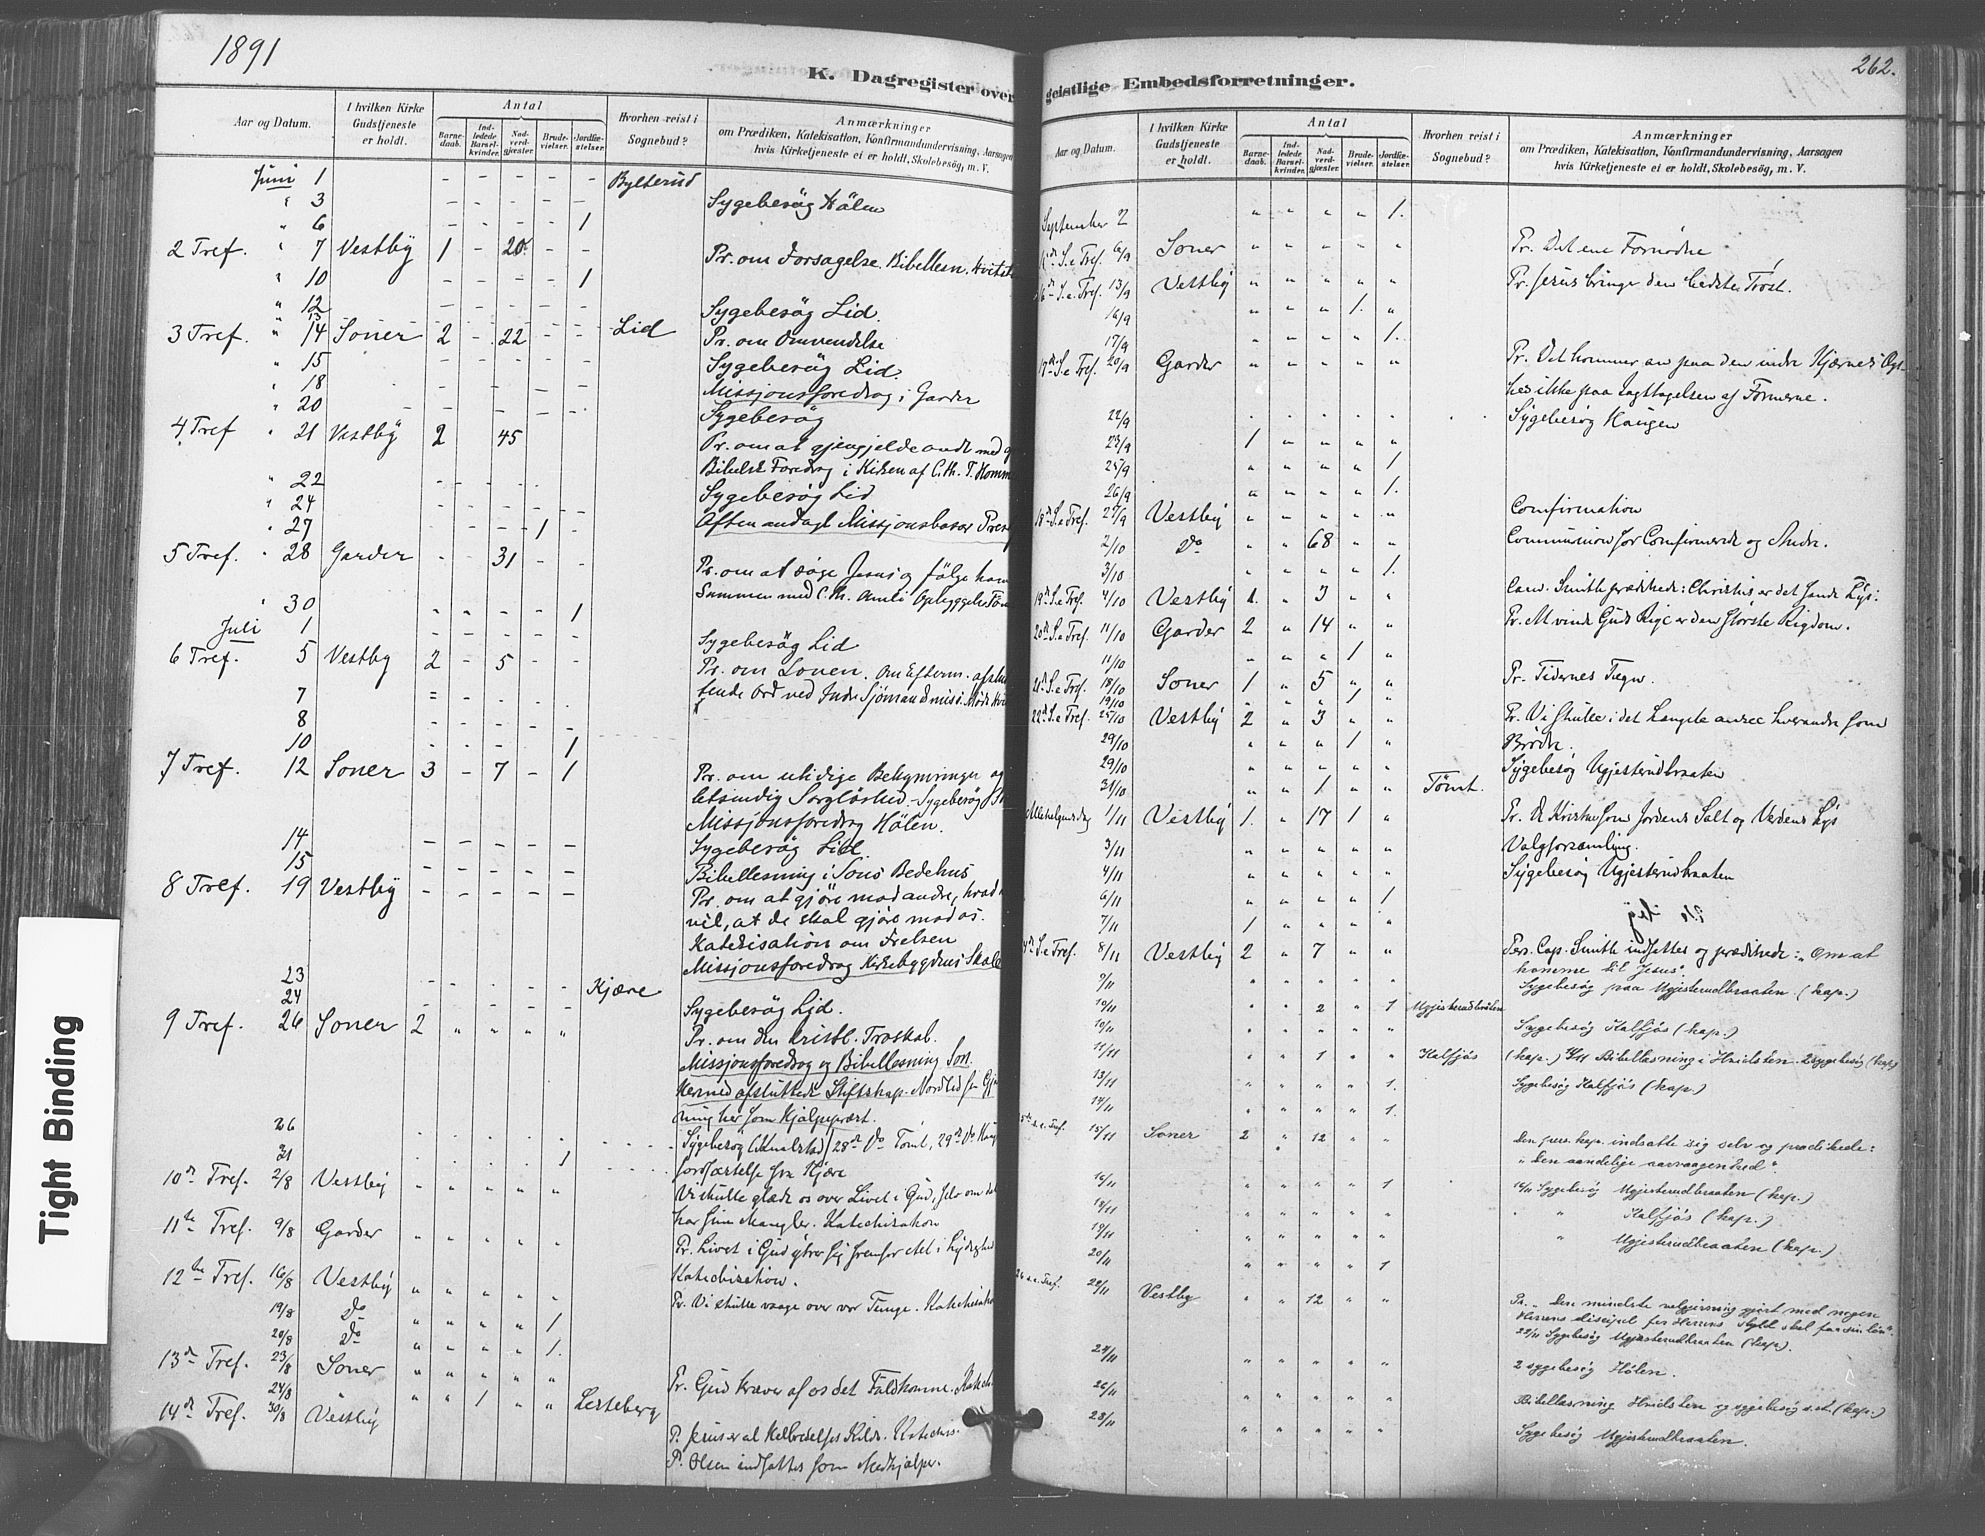 1891
262.
K. Dagregister over geistlige Embedsforretninger.
Aar og Datum.
I hvilken Kirke Gudstjeneste er holdt.
Antal
Barnedaab.
Indledede Barselkvinder.
Nadverdgjæster.
Brudevielser.
Jordfæstelser.
Hvorhen reist i Sognebud?
Anmærkninger
om Prædiken, Katekisation, Konfirmandundervisning, Aarsagen
hvis Kirketjeneste ei er holdt, Skolebesøg, m. V.
Juni 1 - - - - - Bylterud
" 3 - - - - - Sygebesøg Hölen
" 6 - - - - 1
2 Tref. " 7 Vestby 1 - 20 - - Pr. om Forsagelse. Bibellesn. Hvitst
" 10 - - - - 1
" 12 - - - - - Sygebesøg Lid.
" 13 Lid
3 Tref. " 14 Soner 2 - 22 - - Pr. om Omvendelse
" 15 - - - - - Sygebesøg Lid.
" 18 - - - - - Missjonsforedrag i Garder
" 20 - - - - - Sygebesøg
4 Tref " 21 Vestby 2 45 Pr. om at gjengjelde ondt med g
Bibelsk Foredrag i Kirken af C. th. T. Homm
" 22 - - - - - Sygebesøg Lid
" 24 - - - - -
" 27 - - - 1 - Aften andagt Missjonsbasar Prest
5 Tref. " 28 Garder - - 31 - - Pr. om at søge Jesus og følge ham
Sammen med C. th. Amli Opbyggelse Töm
" 30 " - " - 1
Juli 1 - - - - - Sygebesøg Lid
6 Tref. 5 Vestby 2 - 5 - - Pr. om Lonen. Om Efterm. afslut
tende Ord ved Indre Sjømandsmis. Møde Hvi
7 - - - - -
8 - - - - -
10 - - - - 1
7 Tref. 12 Soner 3 - 7 - 1 Pr. om utidige Bekymringer og
letsindig Sorgløshed. - Sygebesøg
Missjonsforedrag Hölen.
14 - - - - - Sygebesøg Lid.
15 - - - - - Bibellesning i Sons Bedehus
8 Tref. 19 Vestby - - - - - Pr. om at gjøre mod andre, hvad
vil, at de skal gjøre mod os.
Katekisation om Frelsen
Missjonsforedrag Kirkebygdens Skole
23 - - - - - Kjære
24 - - - - - Sygebesøg Lid.
9 Tref. 26 Soner 2 " " " " Pr. om den kristl. Troskab.
Missjonsforedrag og Bibellesning Son.
Hermed afsluttede Stiftskap. Nordlid sin Gjer
ning her som Hjælpeprest.
26 Sygebesøg 28de Do Tömt, 29de Do
31 1 Jordfæstelse fra Kjære
10de Tref. 2/8 Vestby " " " " " Vi skulle glæde os over Livet i Gud, selv om det
har sine Mangler. Katechisation
11te Tref. 9/8 Garder " " " " " Pr. Livet i Gud ytrer sig fremfor Alt i Lydighed
Katechisation.
12te Tref. 16/8 Vestby " " " " " Pr. Vi skulle vaage over vor Tunge. Katechisation
19/8 Do " " " " 1
20/8 Do " " " " 1.
13de Tref. 23/8 Soner " " " " " Pr. Gud kræver af os det Fuldkomne. Katech
24/8 " " 1 " " Lesteberg
14de Tref. 30/8 Vestby P. Jesus er al Helbredelses Kilde. Katechis.
P. Olsen indsattes som Medhjælper.
September 2 " " " " 1.
15de S. e Tref. 6/9 Soner " " " " " Pr. Det ene Fornødne
16de S. e. Tref. 13/9 Vestby " " " " " Pr. Jesus bringer den bedste Trøst.
16/9 " " " 1. "
17/9 " " " " 1.
17de S. e Tref. 20/9 Garder " " " " " Pr. Det kommer an paa den indre Kjærnes
hed ikke paa Iagttagelsen af Formerne.
22/9 Sygebesøg Haugen
23/9 1 " " " "
25/9 " " " " 1
26/9 " " " " 1.
18de S. e Tref. 27/9 Vestby " " " " " Comfirmation
2/10 Do " " 68 " " Communion for Comfirmerede og Andre.
3/10 " " " " 1.
19de S. e Tref. 4/10 Vestby 1. " 3 " " Cand. Smith prædikede: Christus er det sande Lys:
20de S. e Tref. 11/10 Garder 2 " 14 " " Pr. At vinde Guds Rige er den største Rigdom.
11/10 " " " 1 "
21de S. e Tref. 18/10 Soner 1 " 5 " " Pr. Tidernes Tegn.
19/10 " " " 1 "
22de S. e Tref. 25/10 Vestby 2 " 3 " " Pr. Vi skulle i det Længste ansee hverandre som
Brødre.
29/10 " " " 1 "
29/10 " " " " " Sygebesøg Ugjesterudbraaten
31/10 " " 1 " " Tömt.
Allehelgensdag 1/11 Vestby 1. " 17 1 " Pr. De Kristne som Jordens Salt og Verdens Lys
3/11 " " " " " Valgforsamling.
4/11 " " " " " Sygebesøg Ugjesterudbraaten
6/11 " " " " 1
7/11 1 " " " "
S. e Tref. 8/11 Vestby 2 " 7 " " Pers. Cap. Smith indsattes og prædikede: "Om at
komme til Jesus".
9/11 " " " " " Sygebesøg paa Ugjesterudbraaten (kap.)
10/11 " " 2 " 1 Ugjesterudbråten
10/11 " " " " " Sygebesøg Kalfjös (kap.)
11/11 " " 1 " " Kalfjös (kap.) Bibellæsning i Hvidsten. 2 sygebesøg (kap)
13/11 " " " " 1. Sygebesøg Kalfjös (kap.)
14/11 " " " " 1.
S. e. Tref. 15/11 Soner 2 " 12 " " Den pers. kap. indsatte sig selv og prædikede:
"Den aandelige aarvaagenhed".
16/11 " " " " 1 16/11 Sygebesøg Ugjesterudbraaten (kap.)
18/11 " " " " " " " Kalfjös (kap.)
19/11 " " " " " " Ugjesterudbraaten (kap.)
20/11 " " " " 1
26 s. e. Tref. 22/11 Vestby " " 12 " " Pr. "Den mindste velgjerning gjort mod nogen
Herrens discipel for Herrens skyld skal faa sin løn".
22/11 Sygebesøg Ugjesterudbraaten (kap).
24/11 " " " " " 2 sygebesøg Hølen.
26/11 " " " " " Bibellæsning Hvidsten og sygebesøg s. st. (kap.)
28/11 " " " " " Sygebesøg Ugjesterudbraaten.
Tight Binding